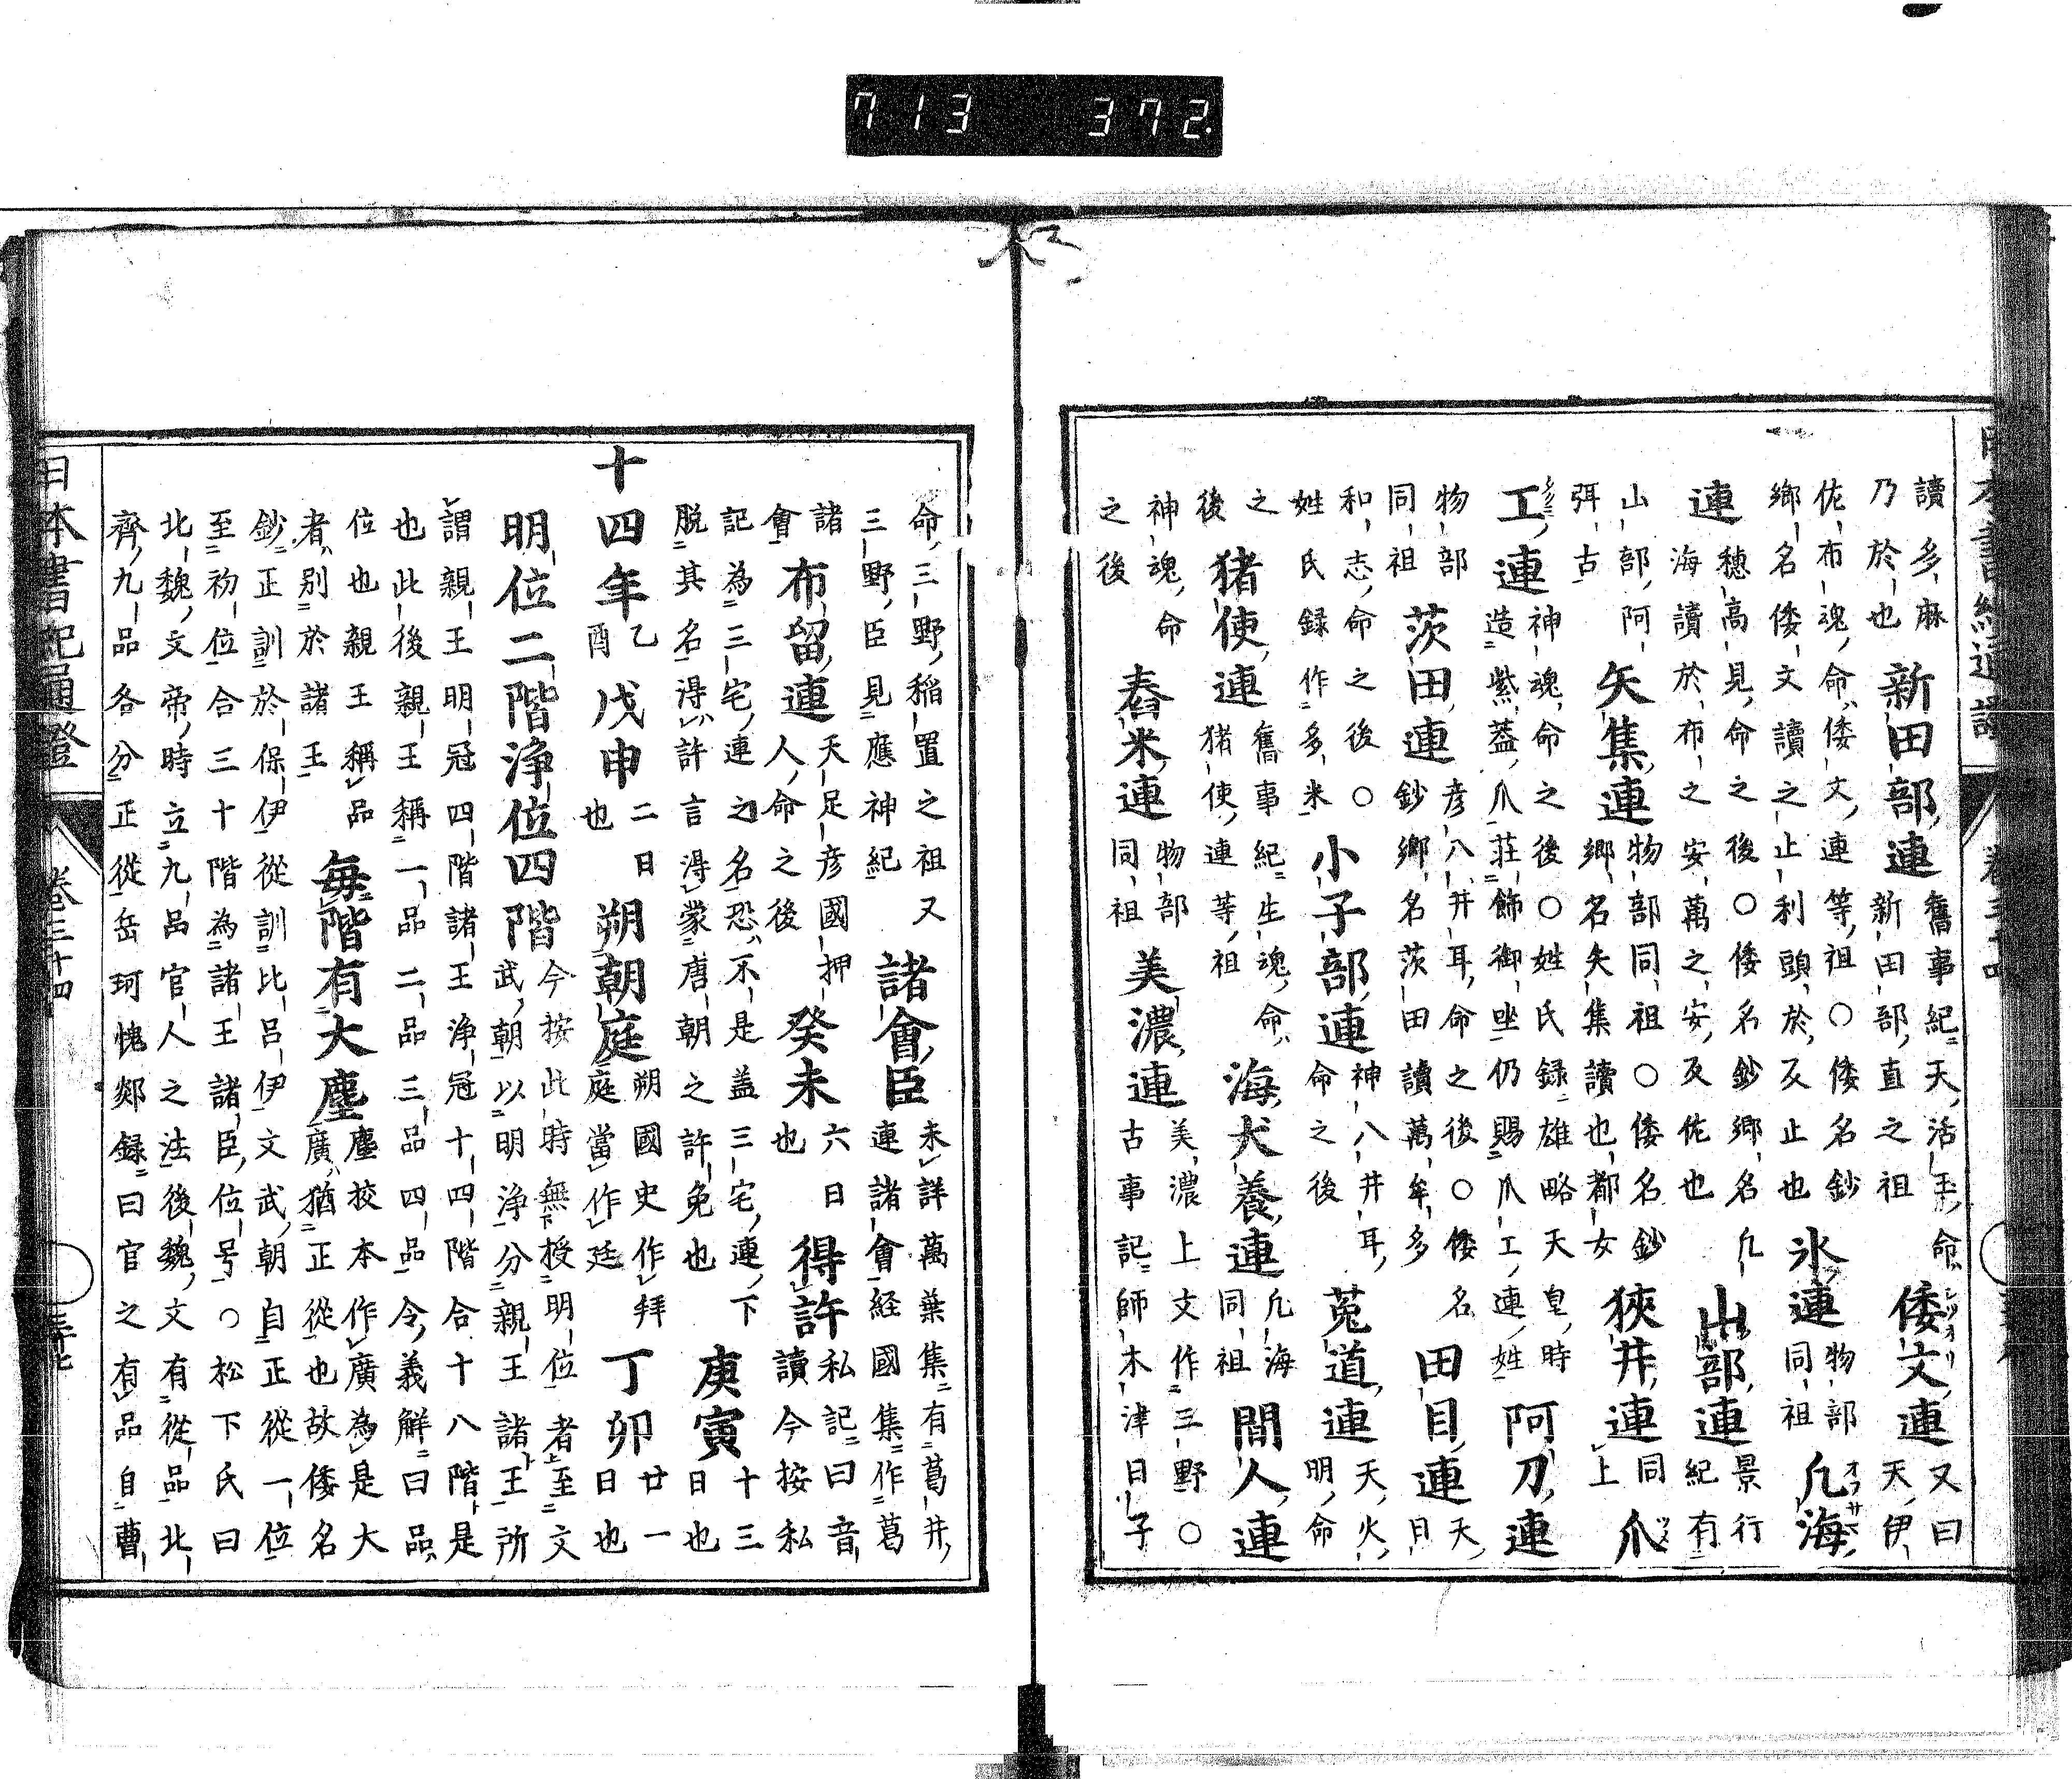 713 372.
讀多麻
乃於也
新田部連
舊事紀天活玉命
新田部直之祖
倭文連
又曰
天伊
佐布魂命倭文連等祖〇倭名鈔
鄉名倭文讀之止利頭於反止也
氷連
物部
同祖
凡海
連
穗高見命之後〇倭名鈔鄉名凡
海讀於布之安萬之安反佐也
山部連
景行
紀有
山部阿
弭古
矢集連
物部同祖〇倭名鈔
鄉名矢集讀也都女
狹井連
同
上
爪
工連
神魂命之後〇姓氏録雄略天皇時
造紫蓋爪莊飾御坐仍賜爪工連姓
阿刀連
物部
同祖
茨田連
彥八井耳命之後〇倭名
鈔鄉名茨田讀萬牟多
田目連
天
日
和志命之後〇
姓氏録作多米
小子部連
神八井耳
命之後
菟道連
天火
明命
之
後
猪使連
舊事紀生魂命
猪使連等祖
海犬養連
凡海
同祖
間人連
神魂命
之後
舂米連
物部
同祖
美濃連
美濃上文作三野〇
古事記師木津日子
命三野稲置之祖又
三野臣見應神紀
諸會臣
未詳萬葉集有葛井
連諸會経國集作葛
諸
會
布留連
天足彦國押
人命之後
癸未
六日
也
得許
私記曰音
讀今按私
記為三宅連之名恐不是盖三宅連下
脱其名淂許言淂蒙唐朝之許免也
庚寅
十三
日也
十四年
乙
酉
戊申
二日
也
朔朝庭
朔國史作拜
庭當作廷
丁卯
廿一
日也
明位二階淨位四階
今按此時無授明位者至文
武朝以明淨分親王諸王所
謂親王明冠四階諸王淨冠十四階合十八階是
也此後親王稱一品二品三品四品令義解曰品
位也親王稱品
者別於諸王
毎階有大塵
塵挍本作廣為是大
廣猶正從也故倭名
鈔正訓於保伊從訓比呂伊文武朝自正從一位
至初位合三十階為諸王諸臣位号〇松下氏曰
北魏文帝時立九品官人之法後魏文有從品北
齊九品各分正從岳珂愧郯録曰官之有品自曹
日本書紀通證 卷三十四 三十七